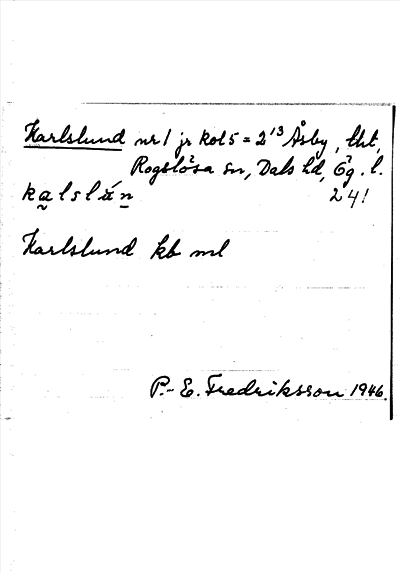 Karlslund nr 1 jr kol 5 = 2¹³ Åsby, tht,
Rogslösa sn, Dals hd, Ög. l.
kalslún 24!
Karlslund kb ml
P.-E. Fredriksson 1946.